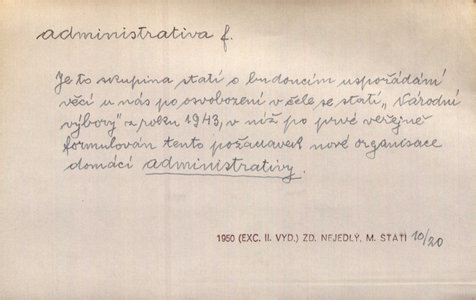 administrativa f.
Je to skupina statí o budoucím uspořádání
věcí u nás po osvobození v čele se statí „Národní
výbory" z roku 1943, v níž po prvé veřejně
formulován tento požadavek nové organisace
domácí administrativy.
1950 (EXC. II. VYD.) ZD. NEJEDLÝ, M. STATI 10/20